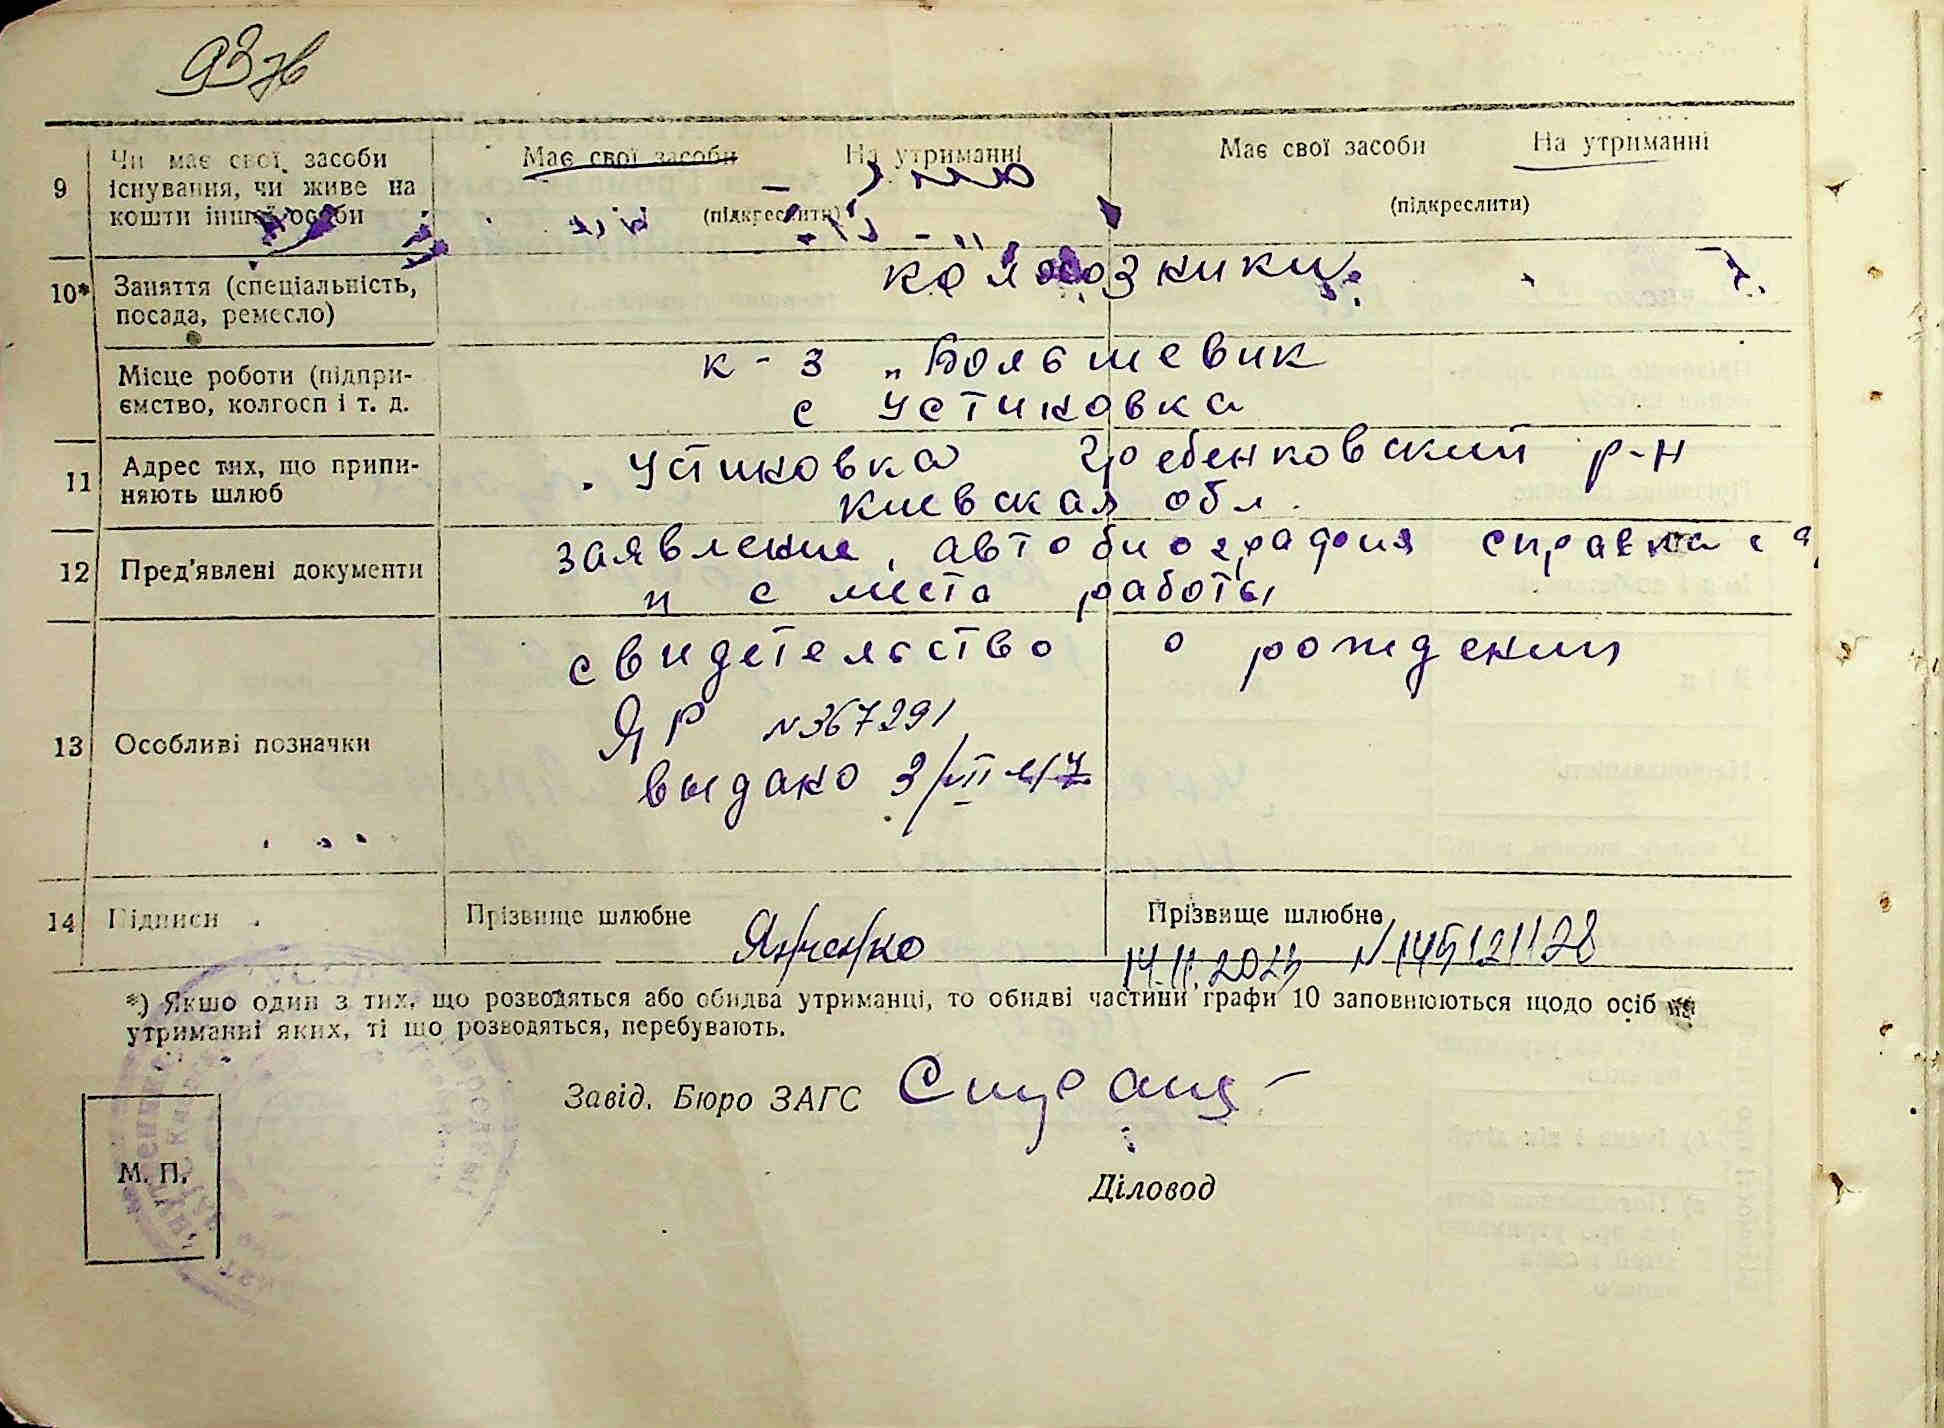 93
9 Чи має свої засоби існування, чи живе на кошти іншої особи
Має свої засоби На утриманні
(підкреслити)
Має свої засоби На утриманні
(підкреслити)
10* Заняття (спеціальність, посада, ремесло)
колхозники
Місце роботи (підпри-
ємство, колгосп і т. д.
к-з „Большевик
с Устиновка
11 Адрес тих, що припи-
няють шлюб
Устиновка Гребенковский р-н
Киевская обл.
12 Пред'явлені документи
заявление, автобиография справка с
и с места работы
13 Особливі позначки
свидетельство о рождении
ЯР №367291
выдано 3/VII-47
14 Підписи
Прізвище шлюбне
Прізвище шлюбне
14.11.2023 №145121128
*) Якшо один з тих, що розводяться або обидва утриманці, то обидві частини графи 10 заповнюються щодо осіб на
утриманні яких, ті що розводяться, перебувають.
Завід. Бюро ЗАГС
Діловод
М. П.